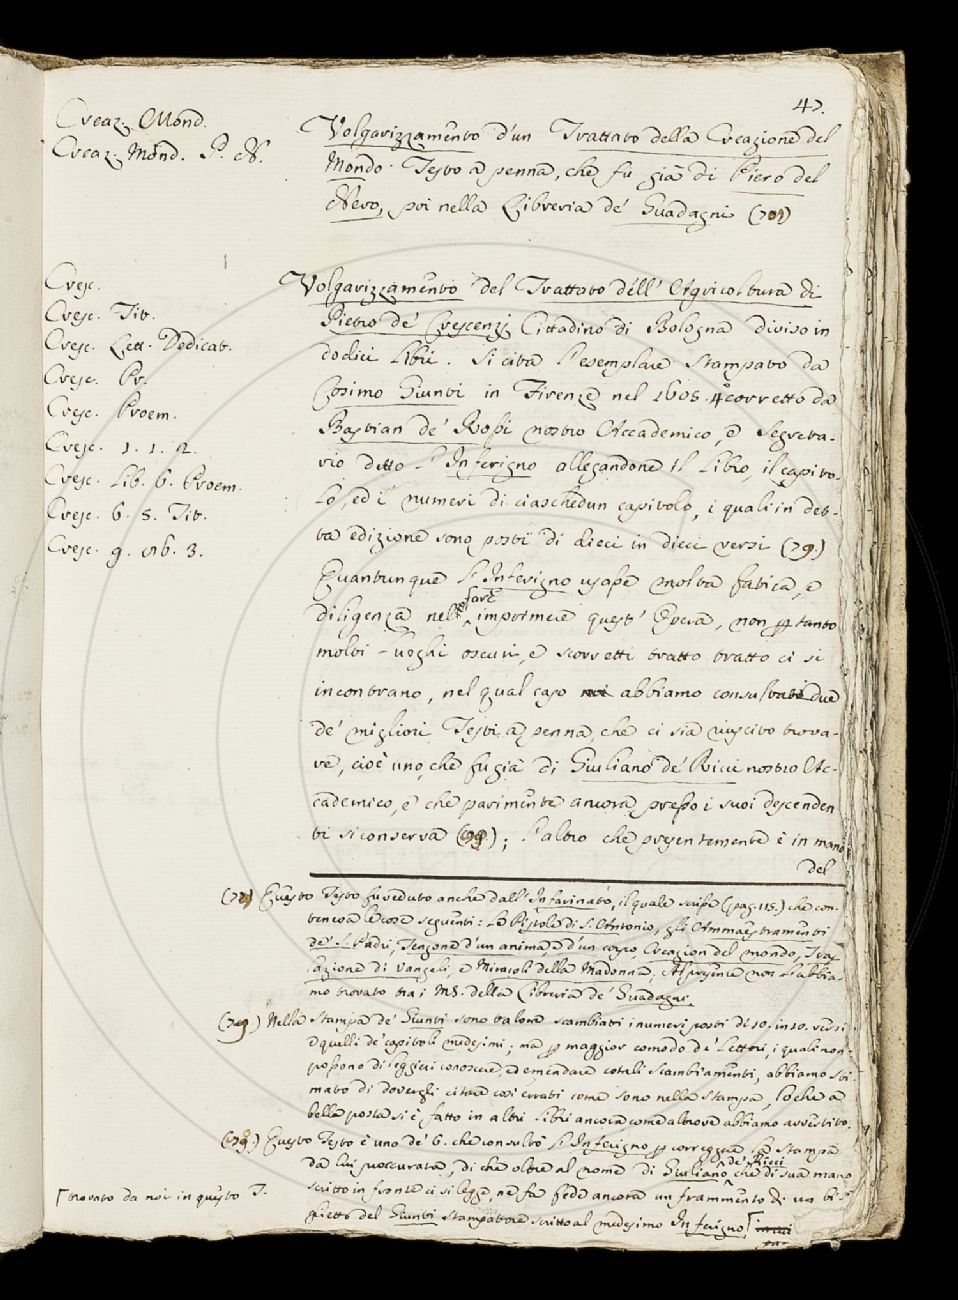 47.
Creaz. Mond.
Creaz. Mond. P. N.
Volgarizzamento d'un Trattato della Creazione del
Mondo. Testo a penna, che fu già di Piero del
Nero, poi nella Libreria de' Guadagni
Cresc.
Cresc. Tit.
Cresc. Lett. Dedicat.
Cresc. Pr.
Cresc. Proem.
Cresc. 1. 1. 2.
Cresc. Lib. 6. Proem.
Cresc. 6. 5. Tit.
Cresc. 9. 3.
Volgarizzamento del Trattato dell' Agricoltura di
Pietro de' Crescenzj Cittadino di Bologna diviso in
dodici Libri. Si cita l'esemplare stampato da
Cosimo Giunti in Firenze nel 1605. 4° corretto da
Bastian de' Rossi nostro Accademico, e Segreta-
rio detto l'Inferigno allegandone il Libro, il capito-
lo, ed i numeri di ciaschedun capitolo, i quali in det-
ta edizione sono posti di dieci in dieci versi (79.)
Quantunque l'Inferigno usasse molta fatica, e
diligenza nel fare imprimere quest' Opera, non p tanto
molti luoghi oscuri, e scorretti tratto tratto ci si
incontrano, nel qual caso abbiamo consultati due
de' migliori Testi a penna, che ci sia riuscito trova-
re, cioè uno, che fu già di Giuliano de' Ricci nostro Ac-
cademico, e che parimente ancora presso i suoi descenden
ti si conserva; l'altro che presentemente è in mano
del
Questo Testo fu veduto anche dall' Infarinato, il quale scrisse (pag. 115.) che con-
teneva le cose seguenti: Le Pistole di S. Antonio, gli Ammaestramenti
de' S. Padri, Tenzone d'un anima, e d'un corpo, Creazion del mondo, Tras-
lazione di Vangeli, e Miracoli della Madonna; Al presente non l'abbia-
mo trovato tra i MS. della Libreria de' Guadagni.
(79.) Nella stampa de' Giunti sono talora scambiati i numeri posti di 10. in 10. versi
e quelli de' capitoli medesimi; ma p maggior comodo de' Lettori, i quali non
possono di leggieri conoscere, ed emendare cotali scambiamenti, abbiamo sti-
mato di dovergli citare così errati come sono nella stampa, lo che a
bella posta si è fatto in altri libri ancora, come altrove abbiamo avvertito.
Questo Testo è uno de' 6. che consultò l'Inferigno p correggere la stampa
da lui proccurata, di che oltre al nome di Giuliano de' Ricci che di sua mano
scritto in fronte ci si legge, ne fa fede ancora un frammento di un bi-
glietto del Giunti stampatore scritto al medesimo Inferigno
trovato da noi in questo T.